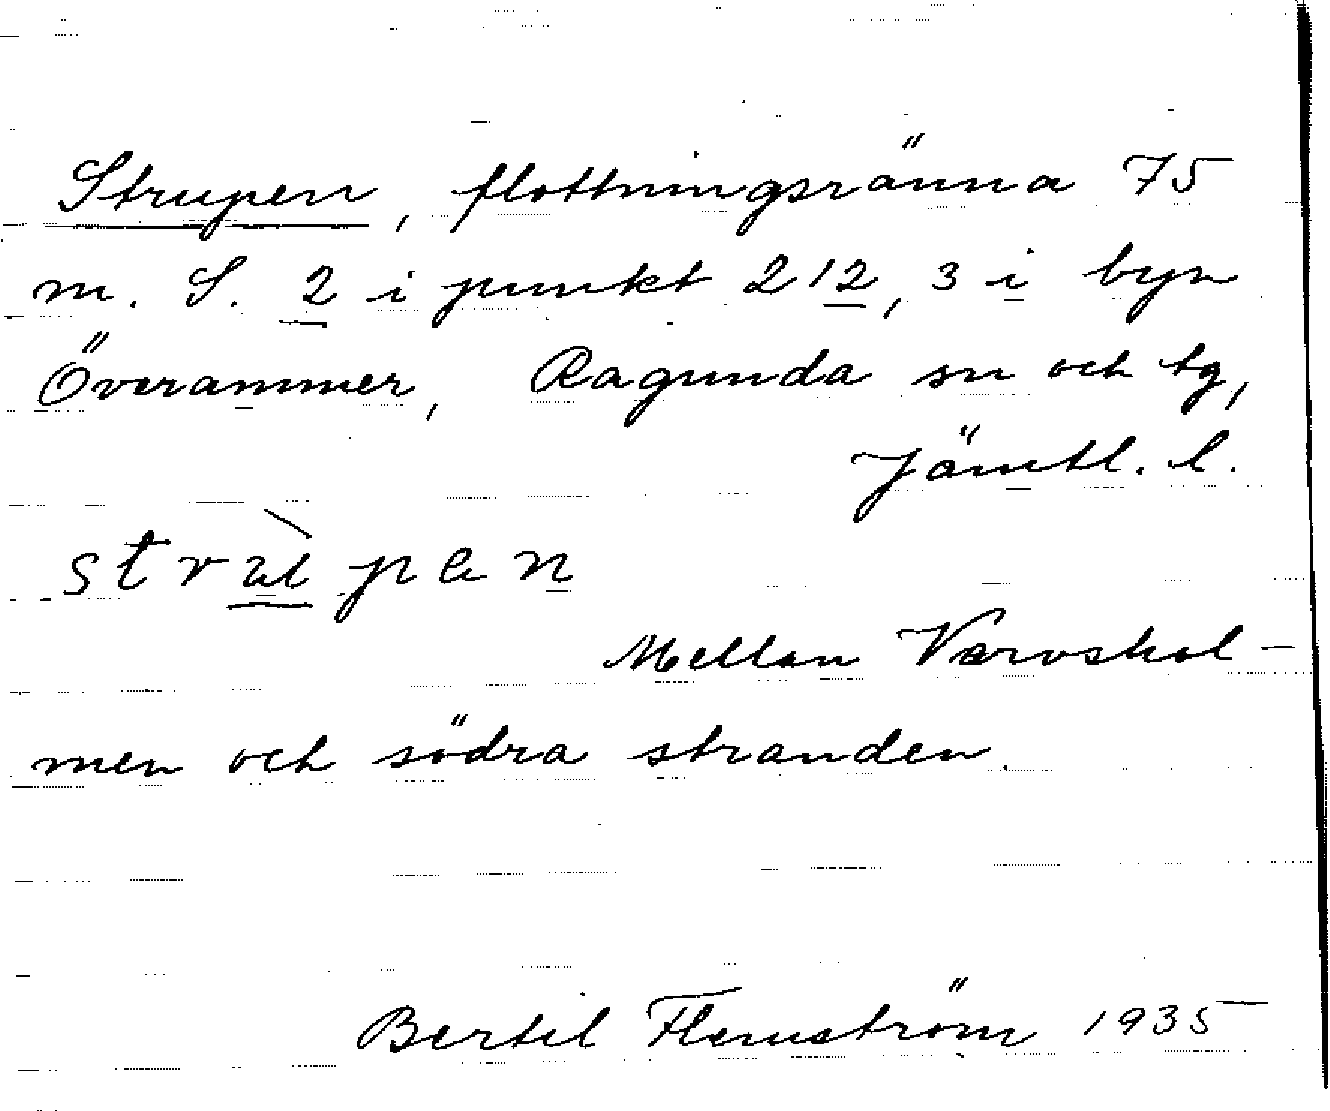 Strupen, flottningsränna 75
m. S. 2 i punkt 212, 3 i byn
Överammer, Ragunda sn och tg,
Jämtl. l.
Mellan Varvshol-
men och södra stranden.
Bertil Flemström 1935